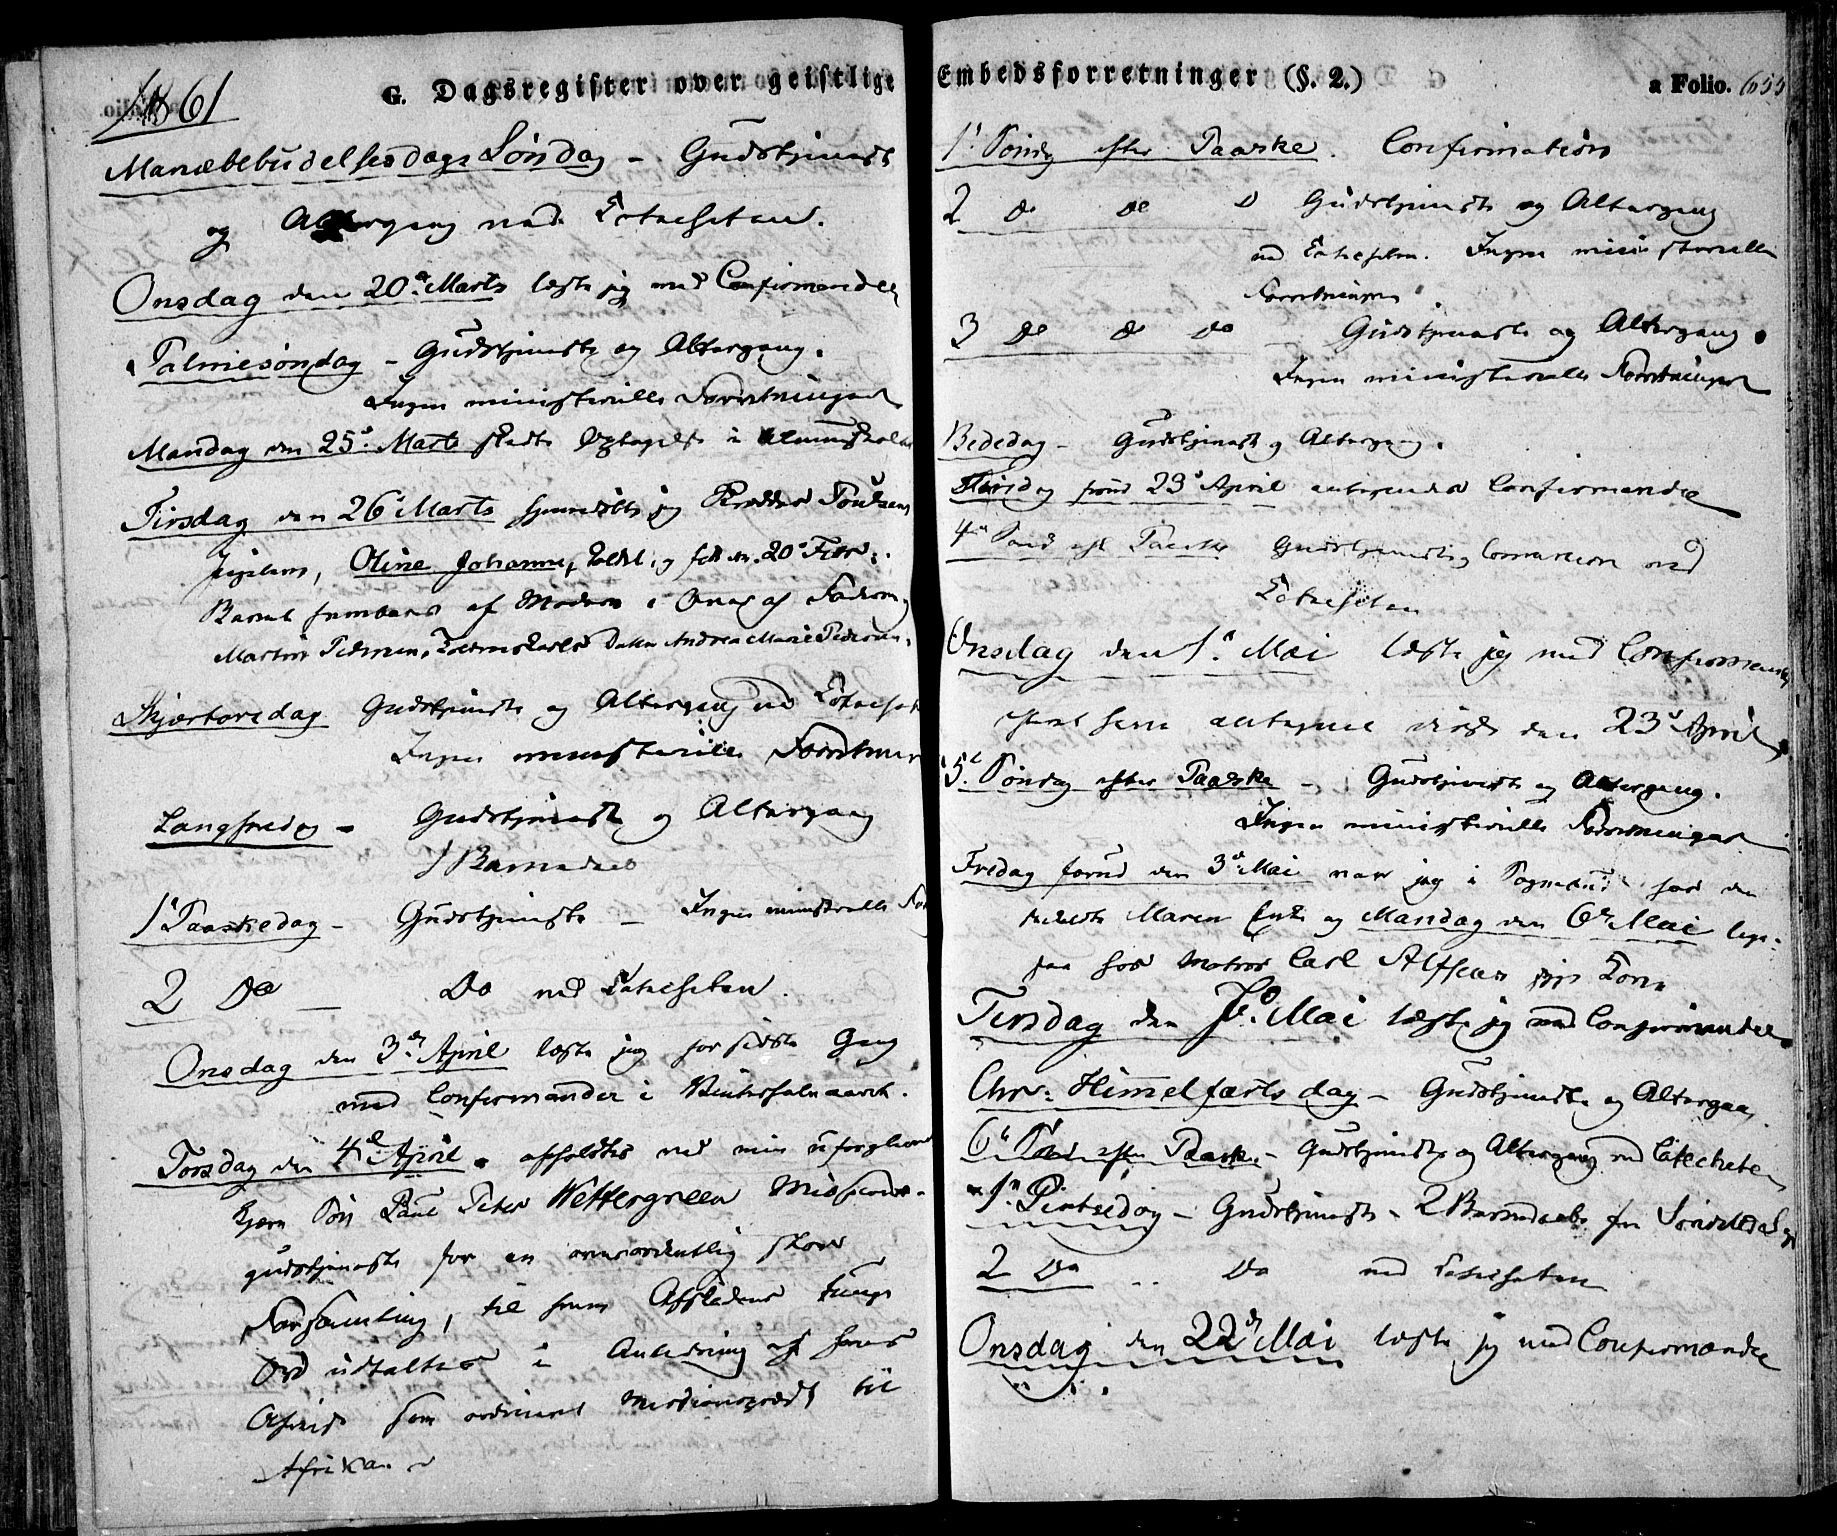 1861
G. Dagsregister over geistlige Embedsforretninger (§. 2.)
a Folio. 655
Mariæbebudelsesdags Søndag – Gudstjeneste
og Altergang ved Catecheten.
Onsdag den 20de Marts læste jeg med Confirmander
Palmesøndag – Gudstjeneste og Altergang.
Ingen ministerielle Forretninger
Mandag den 25de Marts skedte Optagelse i Almueskolen
Tirsdag den 26de Marts hjemmedøbte jeg Poulsens
Oline Johanne, og født den 20de Febr:
Barnet frembaaret af Moderen i Overvær af Faderen og
Martin Pedersen, Datter Andrea Marie Pedersen.
Skjærtorsdag Gudstjeneste og Altergang ved Catechet
Ingen ministerielle Forretninger
Langfredag – Gudstjeneste og Altergang
1 Barnedaab
1ste Paaskedag – Gudstjeneste – Ingen ministerielle
2 Do – Do ved Catecheten.
Onsdag den 3de April læste jeg for sidste Gang
med Confirmander i Vinterhalvaaret.
Torsdag den 4de April afholdtes ved min uforglemmelige
kjære Søn Paul Peter Wettergreen Missions-
gudstjeneste for en overordentlig stor
Forsamling, til hvem Afskedens
Ord udtaltes i Anledning af hans
Afreise som ordineret Missionsprest til
Afrika.
1ste Søndag efter Paaske. Confirmation
2 do do do Gudstjeneste og Altergang
ved Catecheten. Ingen ministerielle
Forretninger.
3 do do do Gudstjeneste og Altergang.
Ingen ministerielle Forretninger
Bededag – Gudstjeneste og Altergang.
forud 23de April antegnedes Confirmander
4de Sønd eft Paaske Gudstjeneste og Communion ved
Catecheten
Onsdag den 1ste Mai læste jeg med Confirmander
som antegnet den 23de April
5te Søndag efter Paaske – Gudstjeneste og Altergang.
Ingen ministerielle Forretninger
Fredag forud den 3de Mai var jeg i Sognebud hos den
Maren og Mandag den 6te Mai lige-
saa hos Matros Carl Kone
Tirsdag den Mai læste jeg med Confirmander
Chr: Himmelfartsdag – Gudstjeneste og Altergang
6te Sønd efter Paaske – Gudstjeneste og Altergang ved Catecheten
1ste Pintsedag – Gudstjeneste – 2 Barnedaab
2 Do .. Do ved Catecheten
Onsdag den 22de Mai læste jeg med Confirmander